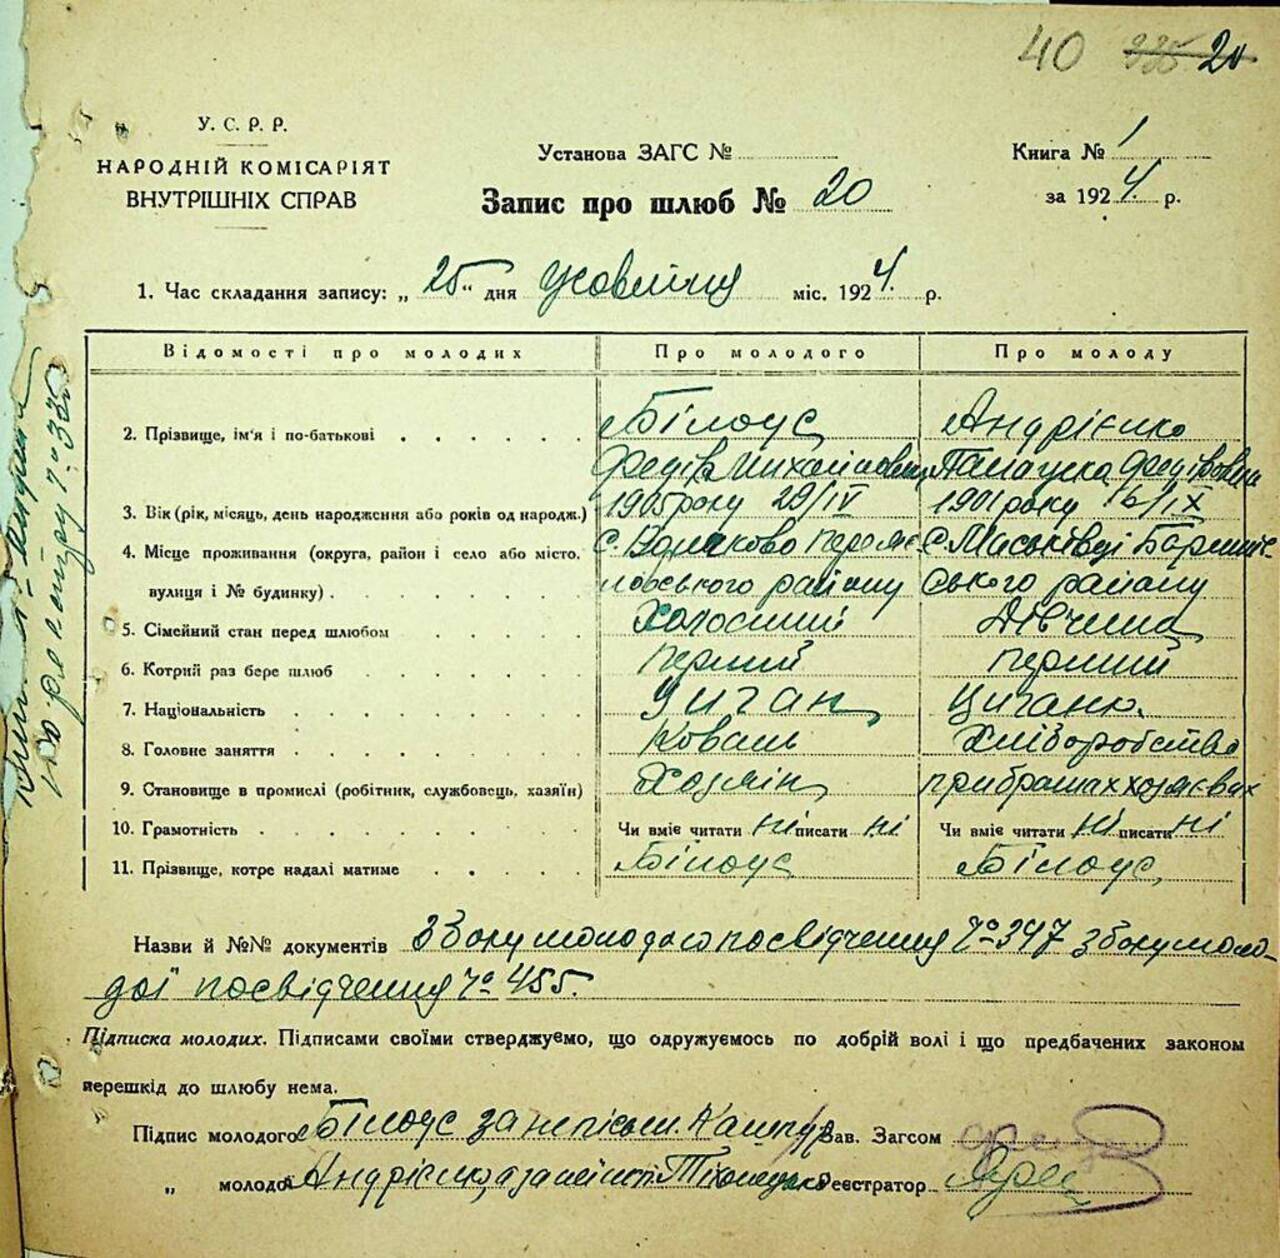 40 20
У. С. Р. Р.
НАРОДНІЙ КОМІСАРІЯТ
ВНУТРІШНІХ СПРАВ
Установа ЗАГС №
Запис про шлюб № 20
Книга № 1
за 1924 р.
1. Час складання запису: „25" дня Жовтня міс. 1924 р.
Відомості про молодих Про молодого Про молоду
2. Прізвище, ім'я і по-батькові Білоус Андрієнко
Федір Михайлович Палажка Федіровна
3. Вік (рік, місяць, день народження або років од народж.) 1905 року 29/IV 1901 року 16/IX
4. Місце проживання (округа, район і село або місто, с. Помоклово Переяс- с. Маськівці Баришіс-
вулиця і № будинку) лавського району ського району
5. Сімейний стан перед шлюбом Холостий Дівчина
6. Котрий раз бере шлюб перший перший
7. Національність Циган Циганю.
8. Головне заняття Коваль Хліборобство
9. Становище в промислі (робітник, службовець, хазяїн) Хозяін при братах хозяєвах
10. Грамотність Чи вміє читати ні писати ні Чи вміє читати ні писати ні
11. Прізвище, котре надалі матиме Білоус Білоус
Назви й №№ документів З боку молодого посвідчення № 347 з боку моло-
дої посвідчення № 455.
Підписка молодих. Підписами своїми стверджуємо, що одружуємось по добрій волі і що предбачених законом
перешкід до шлюбу нема.
Підпис молодого Білоус за неписьм. Зав. Загсом
„ молодої Андрієнко за неписм. Реєстратор